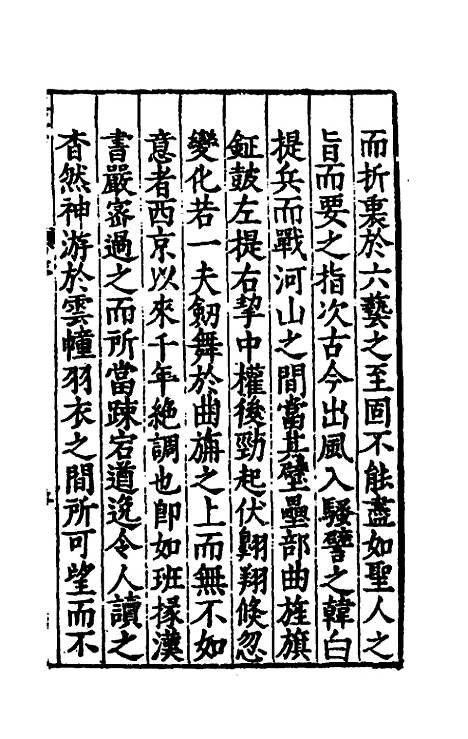 而折裏於六藝之至固不能盡如聖人之
旨而要之指次古今出風入騷譬之韓白
提兵而戰河山之間當其壁壘部曲旌旗
鉦鼓左提右挈中權後勁起伏翱翔倏忽
變化若一夫劒舞於曲旃之上而無不如
意者西京以來千年絶調也即如班掾漢
書嚴密過之而所當疎宕遒逸令人讀之
杳然神游於雲幢羽衣之間所可望而不